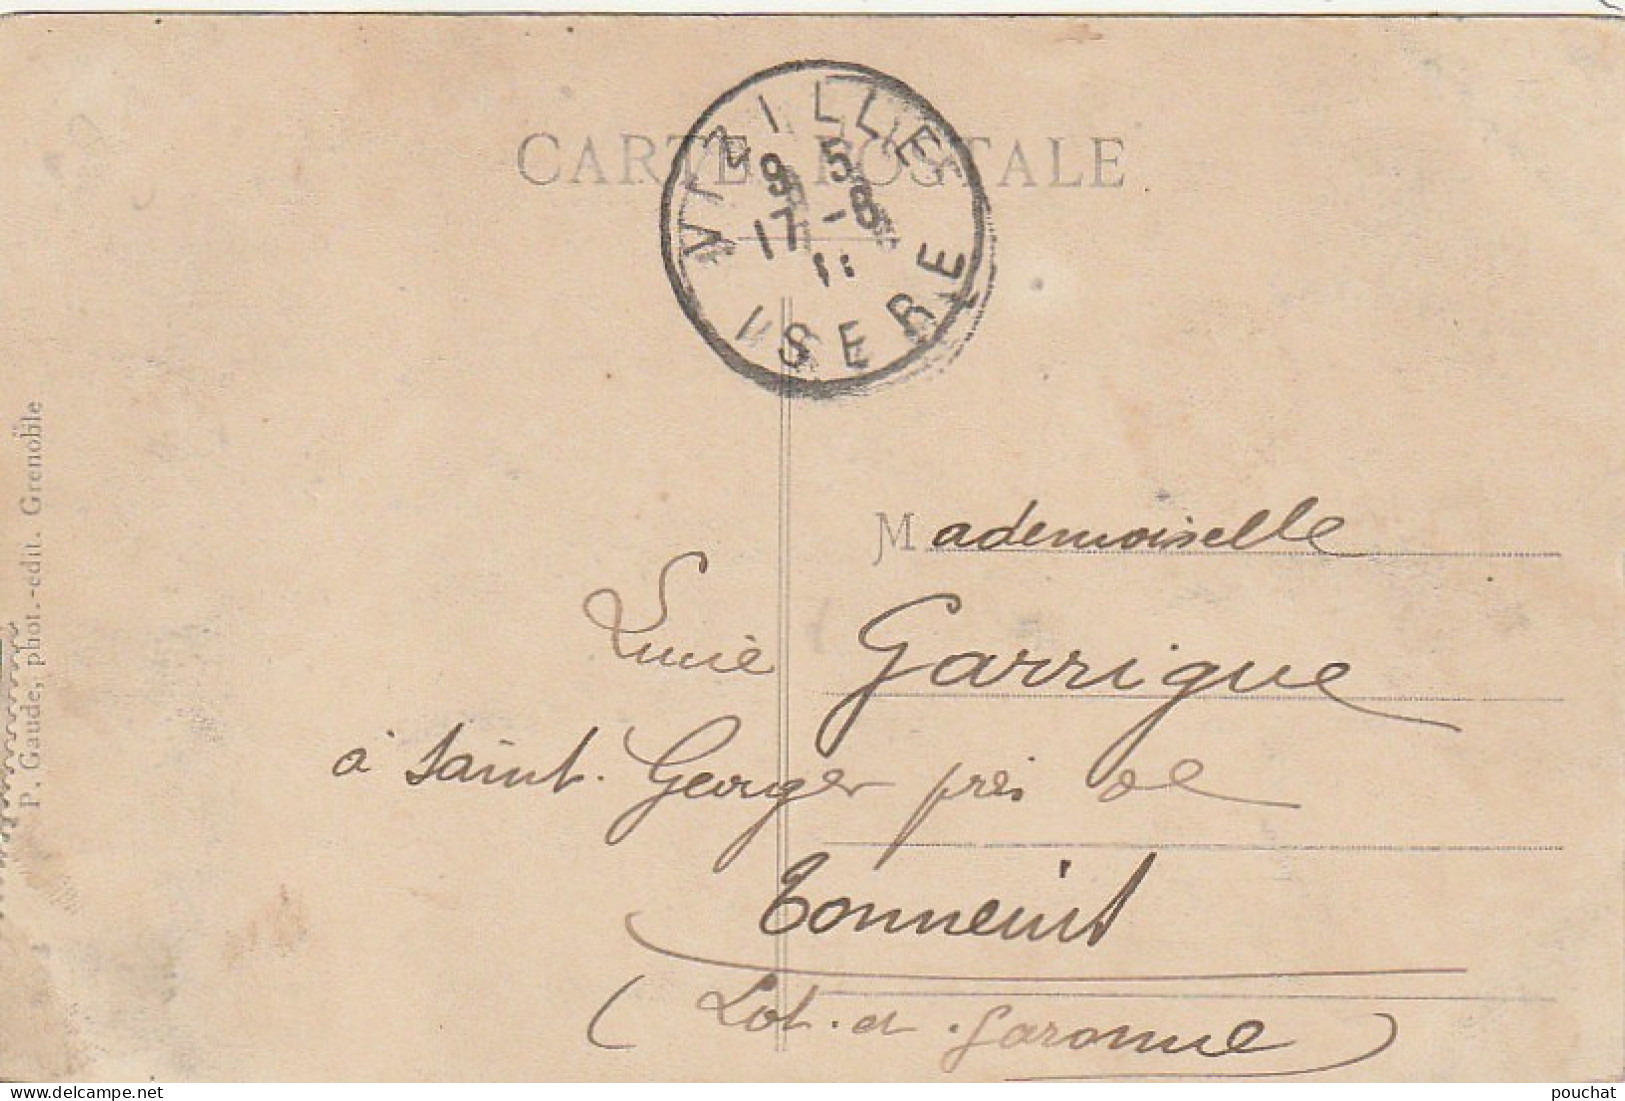 CARTE POSTALE
VIZILLE
9 5
17 - 8
11
ISERE
P. Gaude, phot.-édit. Grenoble
Mademoiselle
Lucie Garrigue
à Saint. Georges près de
Tonneint
(Lot. et. Garonne)
pouchat